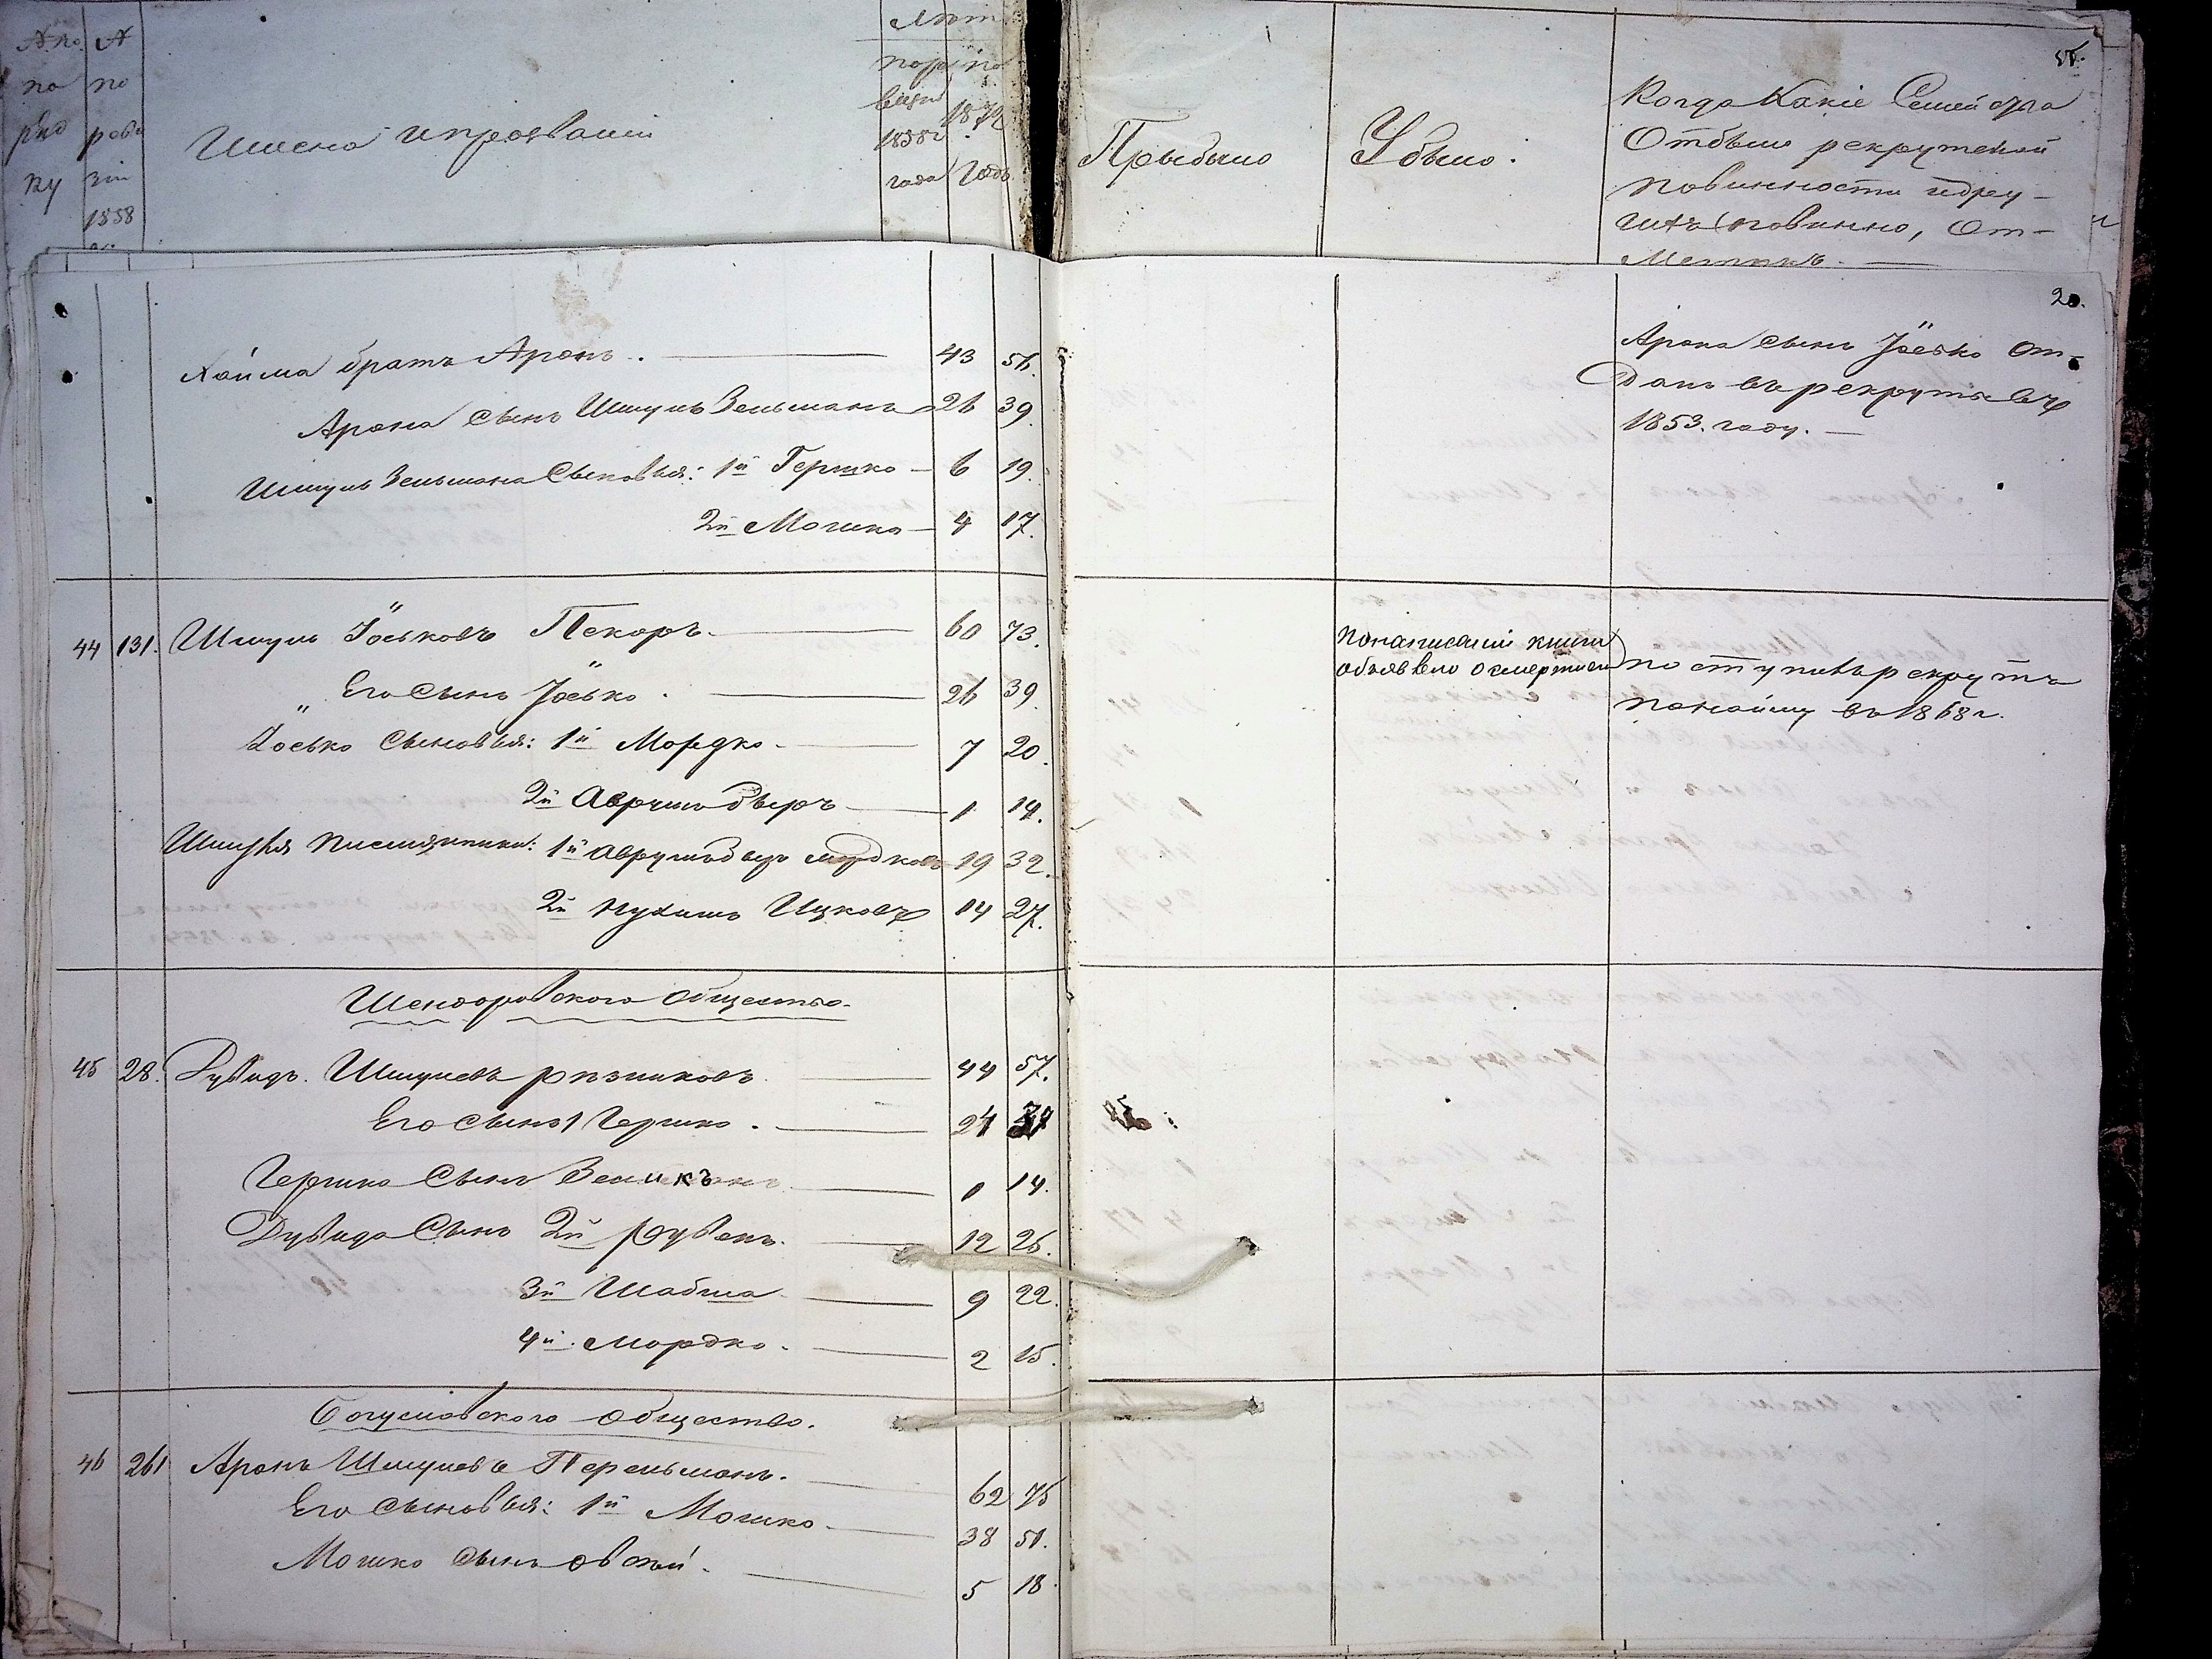 № по
ряд
ку
№
по
реви
зіи
1858
Имена и прозваніи
Лѣт
по ре
визіи
1858
года
по
1872
Годъ
Прыбыло
Убыло.
Когда Какіе Семейства
Отбыли рекрутской
повинности
повинно, От-
20.
Хайма братъ Аронъ. 43 56.
Арона сынъ Шмуль Зельманъ 26 39.
Шмуль Зельмана Сыновья: 1й Гершко 6 19.
2й Мошко 4 17.
Арона сынъ Іосько От-
Данъ въ рекруты въ
1853. году.
44 131. Шмуль Іоськовъ Пекоръ. 60 73.
Его Сынъ Іосько. 26 39.
Іосько Сыновья: 1й Мордко. 7 20.
2й Аврумъ Беръ 1 14.
Шмуля племянники: 1й Аврумъ Беръ Мордковъ 19 32.
2й Нухимъ Ицковъ 14 27.
По написаніи книги
объявлено о смерти
поступилъ рекрутъ
по найму въ 1868 г.
Шендеровского Общества.
45 28. Дувидъ. Шмулевъ Ризниковъ 44 57.
Его Сынъ 1 Гершко. 24
Гершко Сынъ 1 14.
Дувида Сынъ 2й Рувенъ. 12 25.
3й Шабша 9 22.
4й. Мордко. 2 15.
Богуславского Общества.
46 261 Аронъ Шмулевъ Перельманъ. 62 75
Его Сыновья: 1й Мошко 38 51.
Мошко Сынъ Овсей. 5 18.